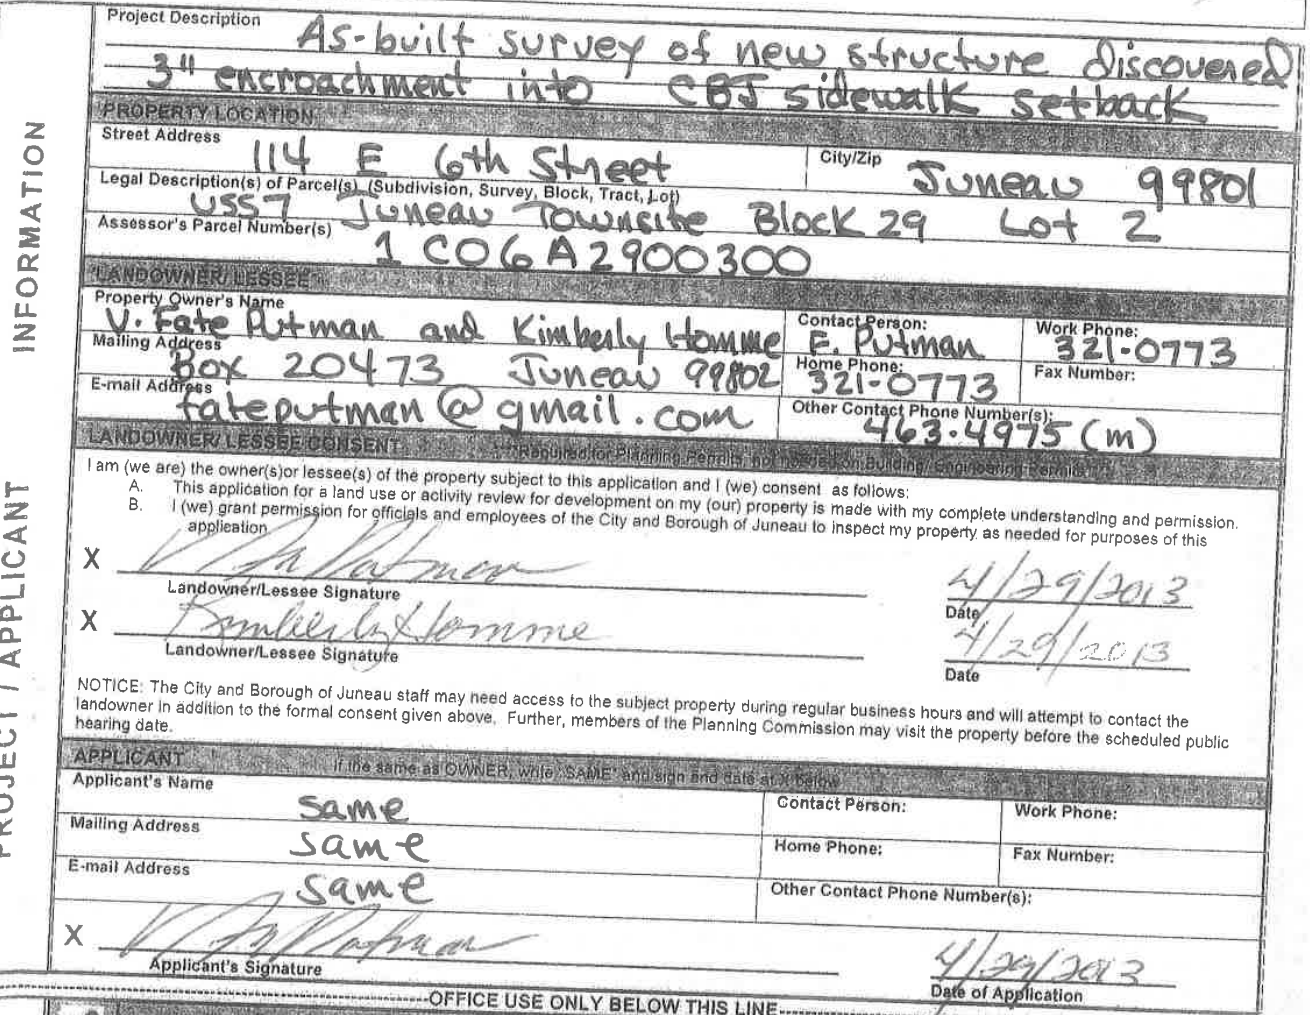 Project Description
As-built survey of new structure discovered
3" encroachment into CBJ sidewalk setback
PROPERTY LOCATION
Street Address
114 E 6th Street
City/Zip
Juneau 99801
Legal Description(s) of Parcel(s) (Subdivision, Survey, Block, Tract, Lot)
USS7 Juneau Townsite Block 29 Lot 2
Assessor's Parcel Number(s)
1C06A2900300
LANDOWNER/ LESSEE
Property Owner's Name
V. Fate Putman and Kimberly Homme
Contact Person:
E. Putman
Work Phone:
321-0773
Mailing Address
Box 20473 Juneau 99802
Home Phone:
321-0773
Fax Number:
E-mail Address
fateputman@gmail.com
Other Contact Phone Number(s):
463-4975 (m)
LANDOWNER/ LESSEE CONSENT
Required for Planning Permits, not needed on Building/ Engineering Permits
I am (we are) the owner(s)or lessee(s) of the property subject to this application and I (we) consent as follows:
A. This application for a land use or activity review for development on my (our) property is made with my complete understanding and permission.
B. I (we) grant permission for officials and employees of the City and Borough of Juneau to inspect my property as needed for purposes of this
application.
X
4/29/2013
Landowner/Lessee Signature
Date
X Kimberly Homme
4/29/2013
Landowner/Lessee Signature
Date
NOTICE: The City and Borough of Juneau staff may need access to the subject property during regular business hours and will attempt to contact the
landowner in addition to the formal consent given above. Further, members of the Planning Commission may visit the property before the scheduled public
hearing date.
APPLICANT
If the same as OWNER, write "SAME" and sign and date at X below
Applicant's Name
same
Contact Person:
Work Phone:
Mailing Address
same
Home Phone:
Fax Number:
E-mail Address
same
Other Contact Phone Number(s):
X
4/29/2013
Applicant's Signature
Date of Application
OFFICE USE ONLY BELOW THIS LINE
PROJECT / APPLICANT INFORMATION